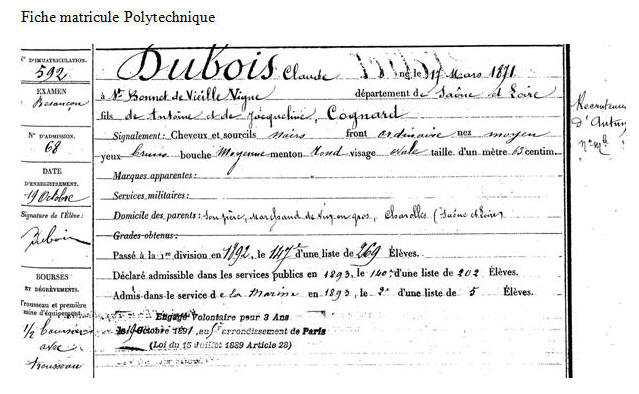 Fiche matricule Polytechnique
N° D'IMMATRICULATION.
592
EXAMEN
Besançon
N° D'ADMISSION.
68
DATE
D'ENREGISTREMENT.
19 Octobre
Signature de l'Élève:
Dubois
BOURSES
ET DÉGRÈVEMENTS.
Trousseau et première
mise d'équipement.
1/2 bourse
avec
trousseau
DUBOIS Claude né le 17 Mars 1871
à St Bonnet de Vieille Vigne département de Saône et Loire
fils de Antoine et de Jacqueline, Cognard
Signalement: Cheveux et sourcils noirs front ordinaire nez moyen
yeux bruns bouche Moyenne menton rond visage ovale taille d'un mètre 63 centim.
Marques apparentes:
Services militaires:
Domicile des parents: son père, Marchand de vin en gros, Charolles (Saône et Loire)
Grades obtenus:
Passé à la 1re division en 1892, le 147e d'une liste de 269 Élèves.
Déclaré admissible dans les services publics en 1893, le 140e d'une liste de 202 Élèves.
Admis dans le service de la Marine en 1893, le 2e d'une liste de 5 Élèves.
Engagé Volontaire pour 3 Ans
le 19 Octobre 1891, au 5e arrondissement de Paris
(Loi du 15 Juillet 1889 Article 28)
Recrutement
d'Autun